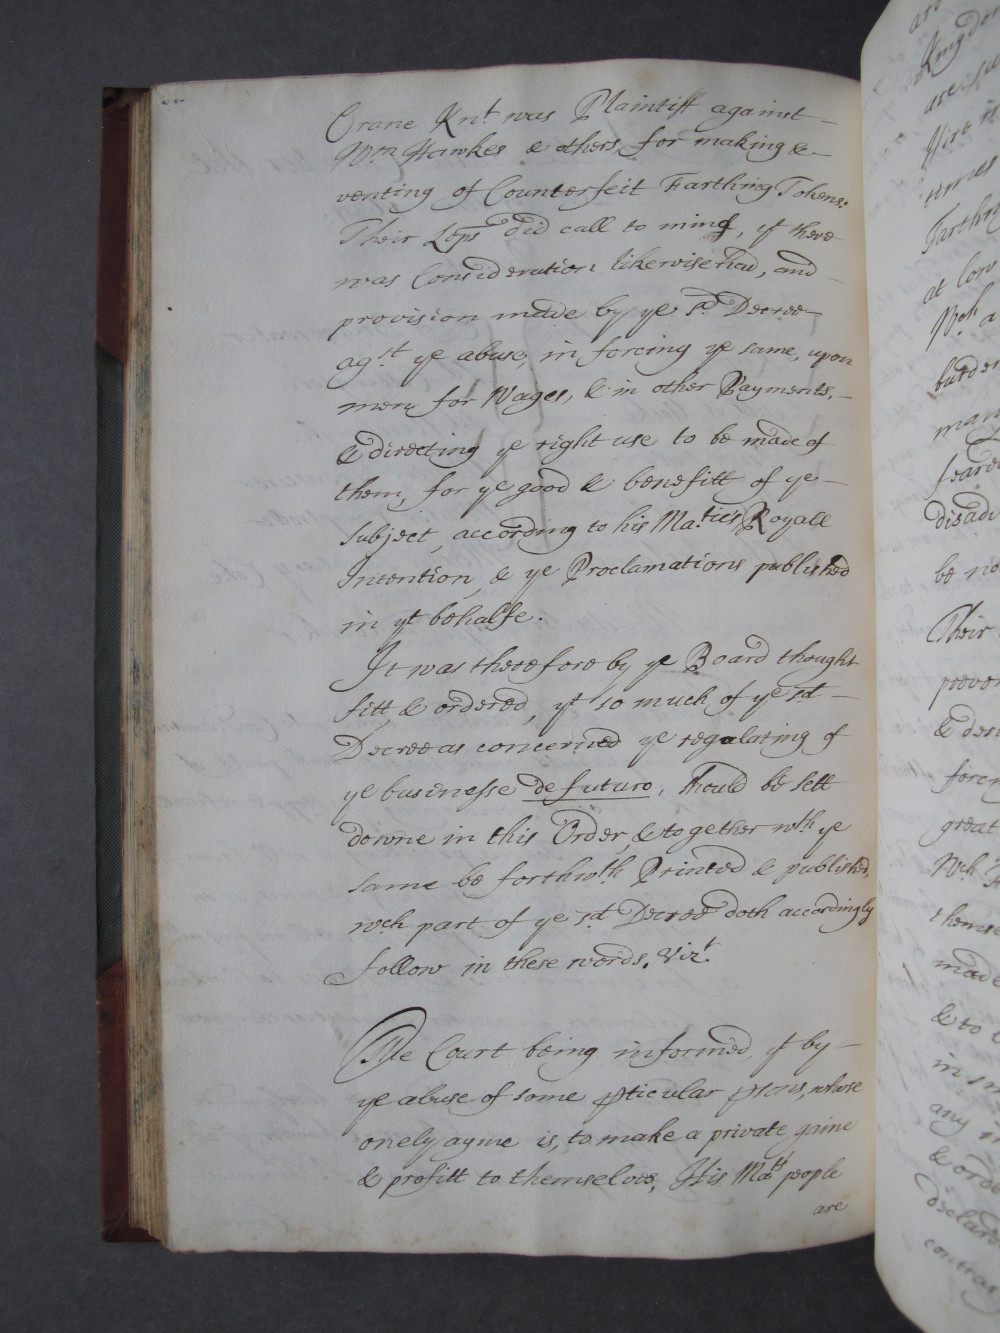 Crane Knt. was Plaintiff against
Wm Hawkes & others, for making &
venting of Counterfeit Farthing Tokens.
Their Lops did call to mind, yt there
was Consideration likewise had, and
provision made by ye sd Decree
agst ye abuse, in forcing ye same, upon
men for Wages, & in other Payments,
& directing ye right use to be made of
them, for ye good & benefitt of ye
subject, according to his Maties Royall
Intention, & ye Proclamations published
in yt behalfe.
It was therefore by ye Board thought
fitt, & ordered, yt so much of ye sd
Decree as concerned ye regulating of
ye businesse de futuro, should be sett
downe in this Order, & together wth ye
same be forthwth Printed & published,
wch part of ye sd Decree doth accordingly
follow in these words. Vizt.
The Court being informed, yt by
ye abuse of some pticular psons, whose
onely ayme is, to make a private gaine
& profitt to themselves, His Mats people
are
are
Kingdo
are su
Hire
times
Farthi
at Low
Wch a
burden
man
feared
disadv
be no
Their
preven
& desi
foren
great
Wch
themse
made
& to
in s
any
& orde
Declard
contrar